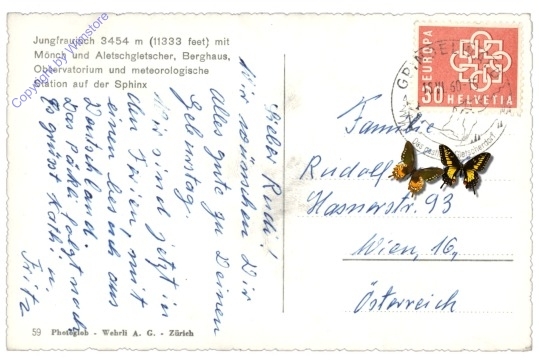 Jungfraujoch 3454 m (11333 feet) mit
Mönch und Aletschgletscher, Berghaus,
Observatorium und meteorologische
Station auf der Sphinx
Copyright by Wienstore
Lieber Rudi!
Wir wünschen Dir
alles gute zu Deinem
Geburtstag.
Wir sind jetzt in
den Ferien, mit
einem Besuch aus
Deutschland.
Das Päckli folgt noch
Es grüsst Kathi u.
Fritz
EUROPA
50 HELVETIA
GRINDELWALD
Familie
Rudolf
Hasnerstr. 93
Wien, 16,
Österreich
59 Photoglob - Wehrli A. G. - Zürich